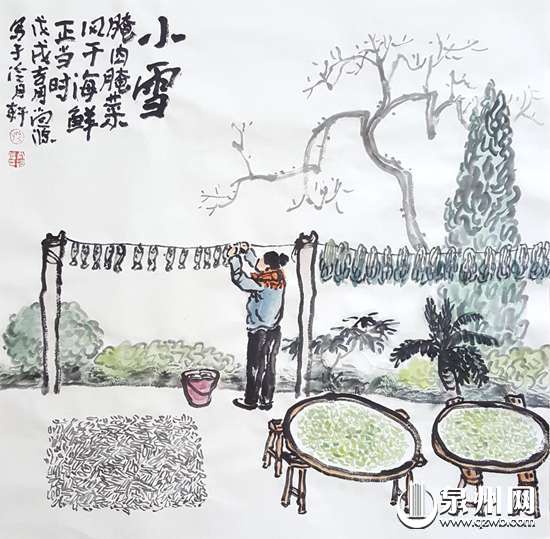 小雪
腌肉腌菜
风干海鲜
正当时
戊戌
写于月轩
泉州网
www.qzwb.com